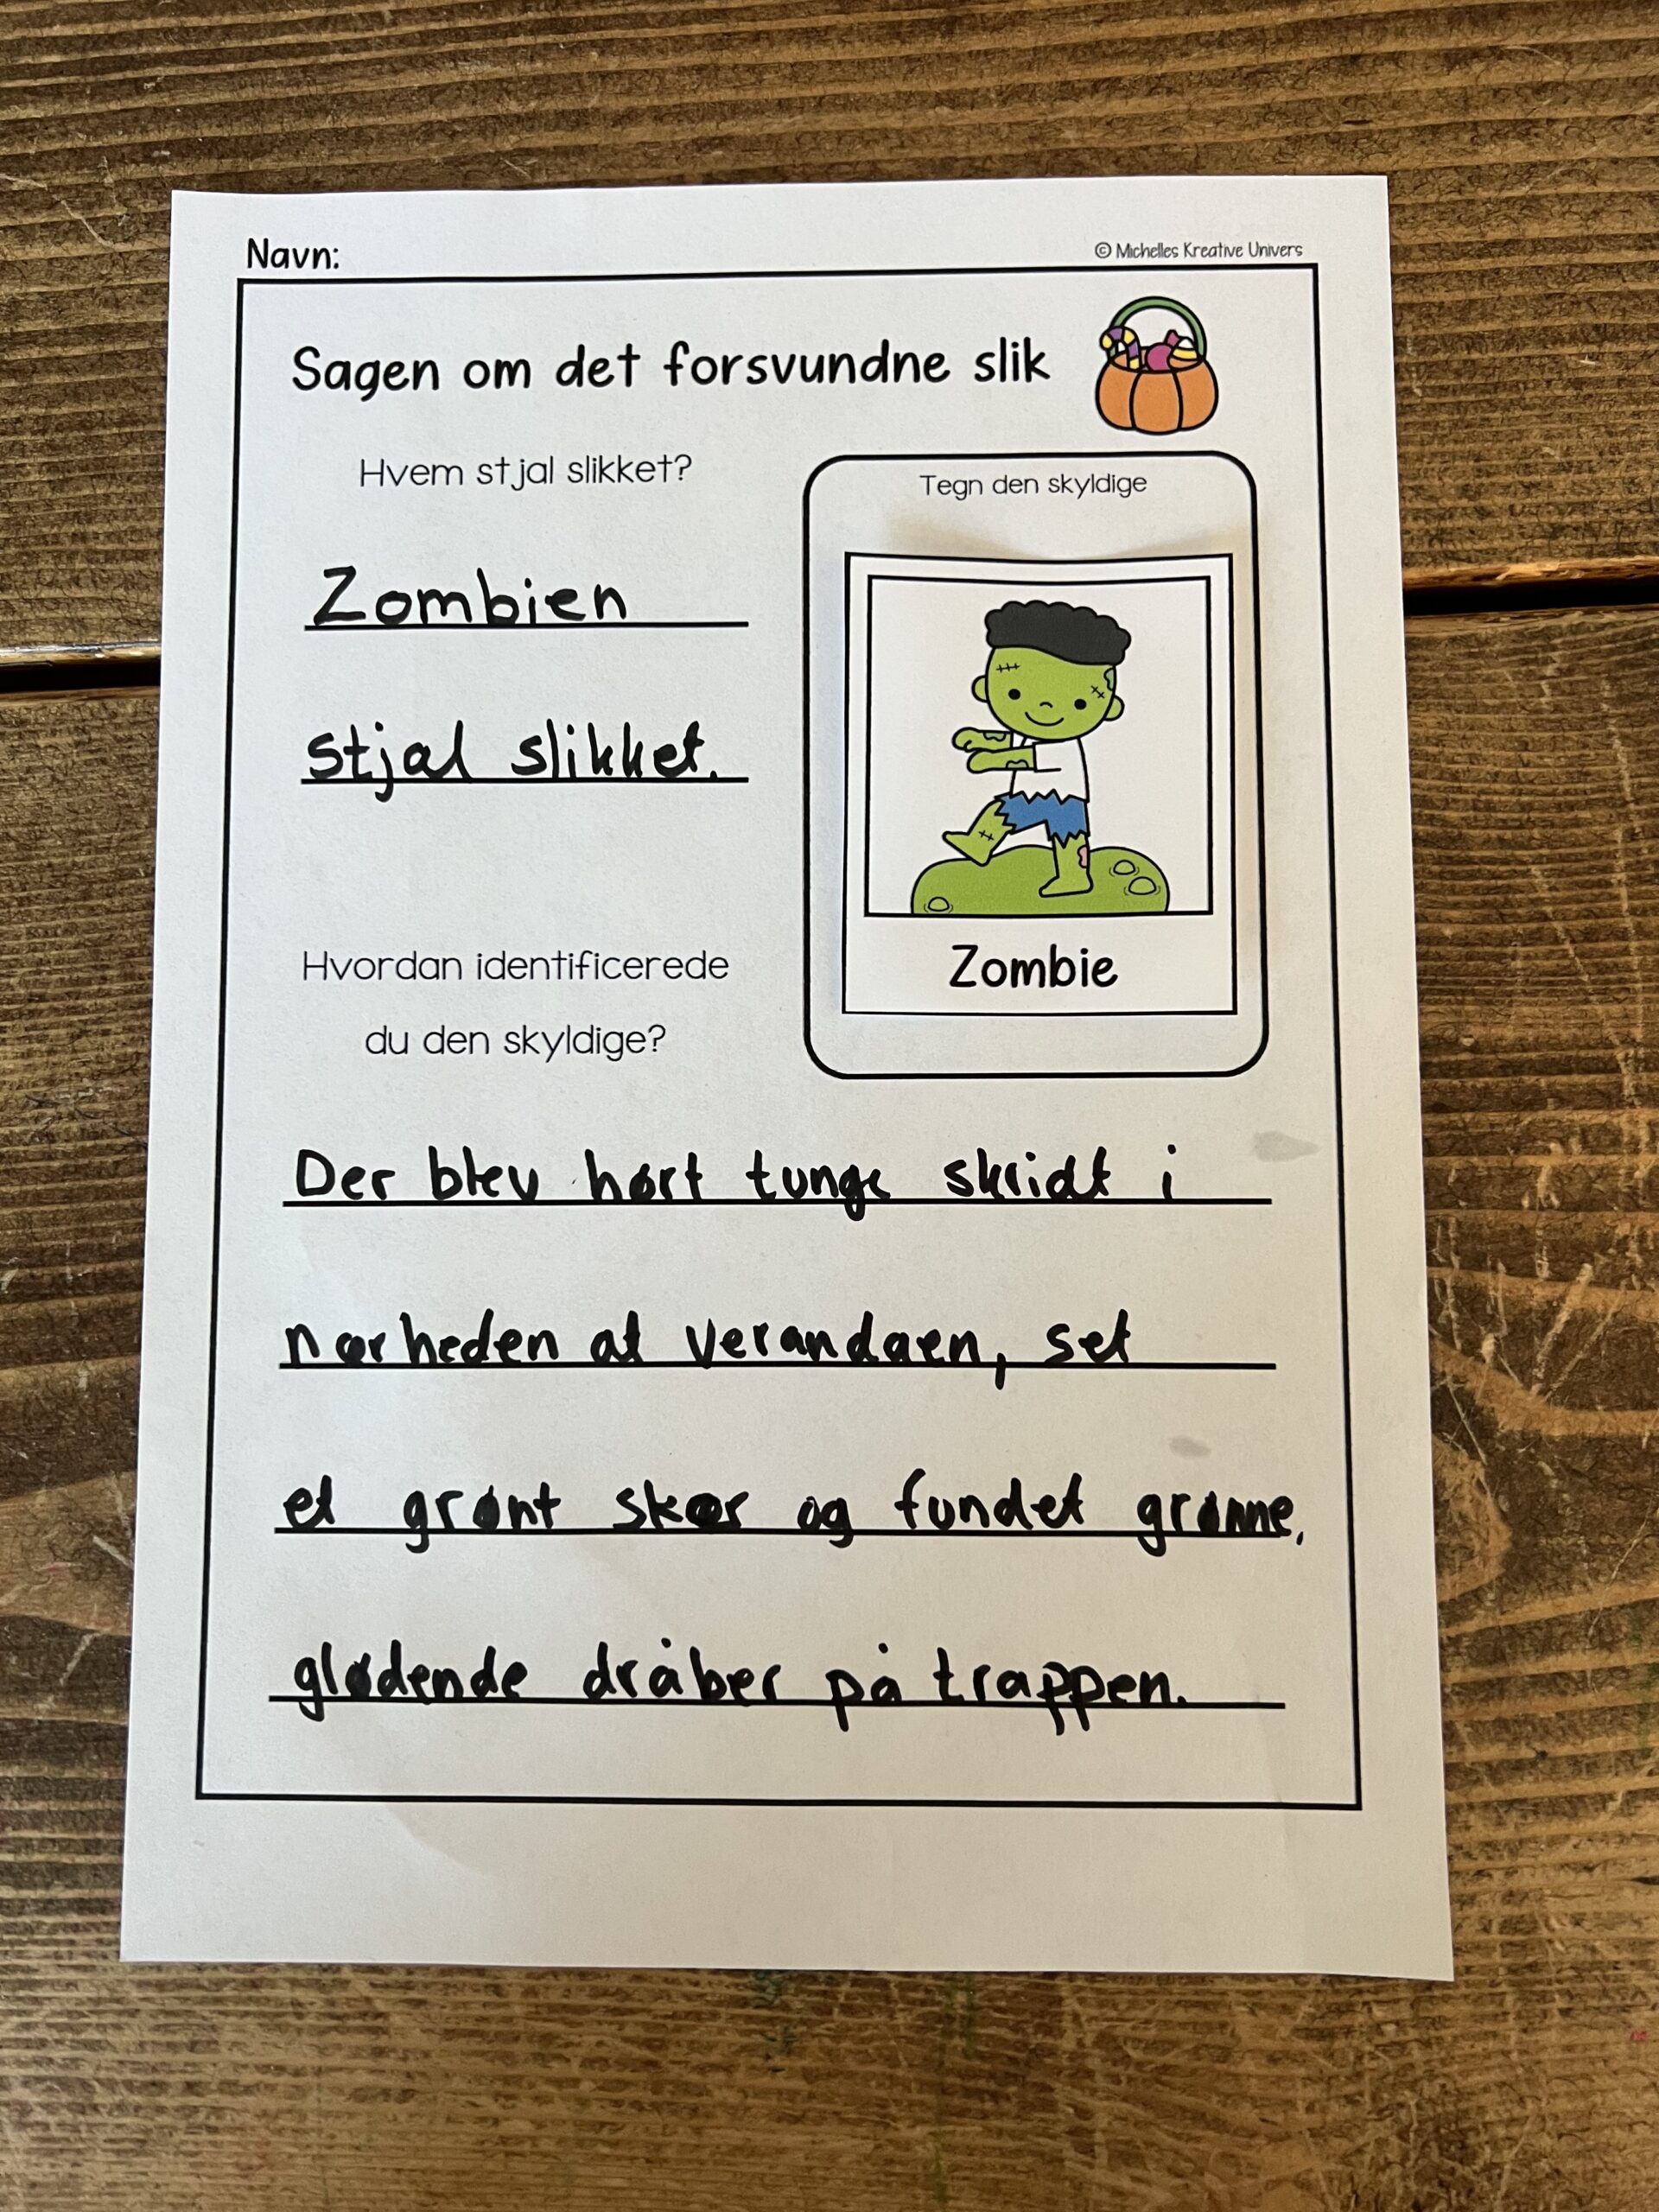 Navn:
© Michelles Kreative Univers
Sagen om det forsvundne slik
Hvem stjal slikket?
Zombien
stjal slikket.
Tegn den skyldige
Zombie
Hvordan identificerede
du den skyldige?
Der blev hørt tunge skridt i
nærheden af verandaen, set
et grønt skær og fundet grønne,
glødende dråber på trappen.